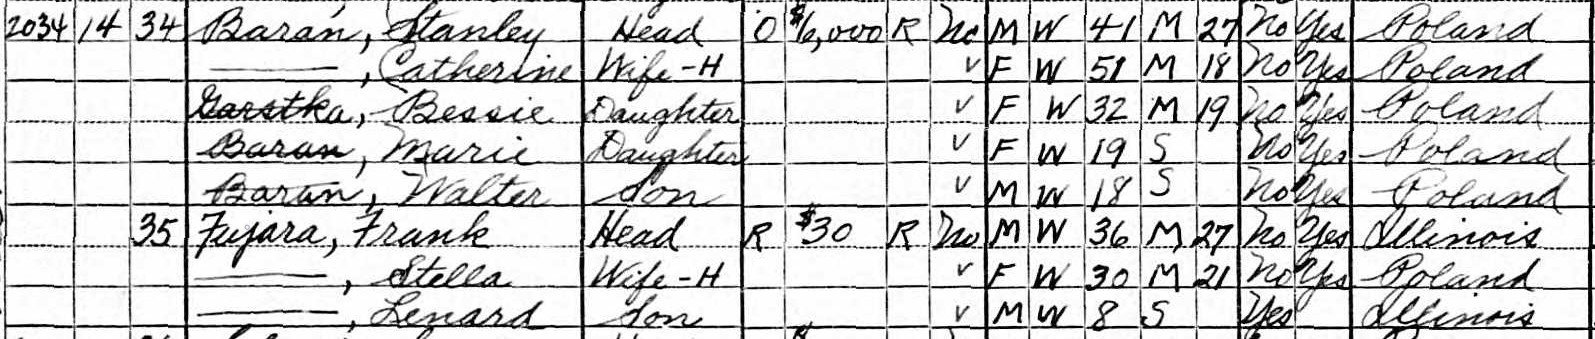 2034 14 34 Baran, Stanley Head O $6,000 R No M W 41 M 27 No Yes Poland
——, Catherine Wife-H v F W 51 M 18 No Yes Poland
Garstka, Bessie Daughter v F W 32 M 19 No Yes Poland
Baran, Marie Daughter v F W 19 S No Yes Poland
Baran, Walter Son v M W 18 S No Yes Poland
35 Fujara, Frank Head R $30 R No M W 36 M 27 No Yes Illinois
——, Stella Wife-H v F W 30 M 21 No Yes Poland
——, Lenard Son v M W 8 S Yes Illinois